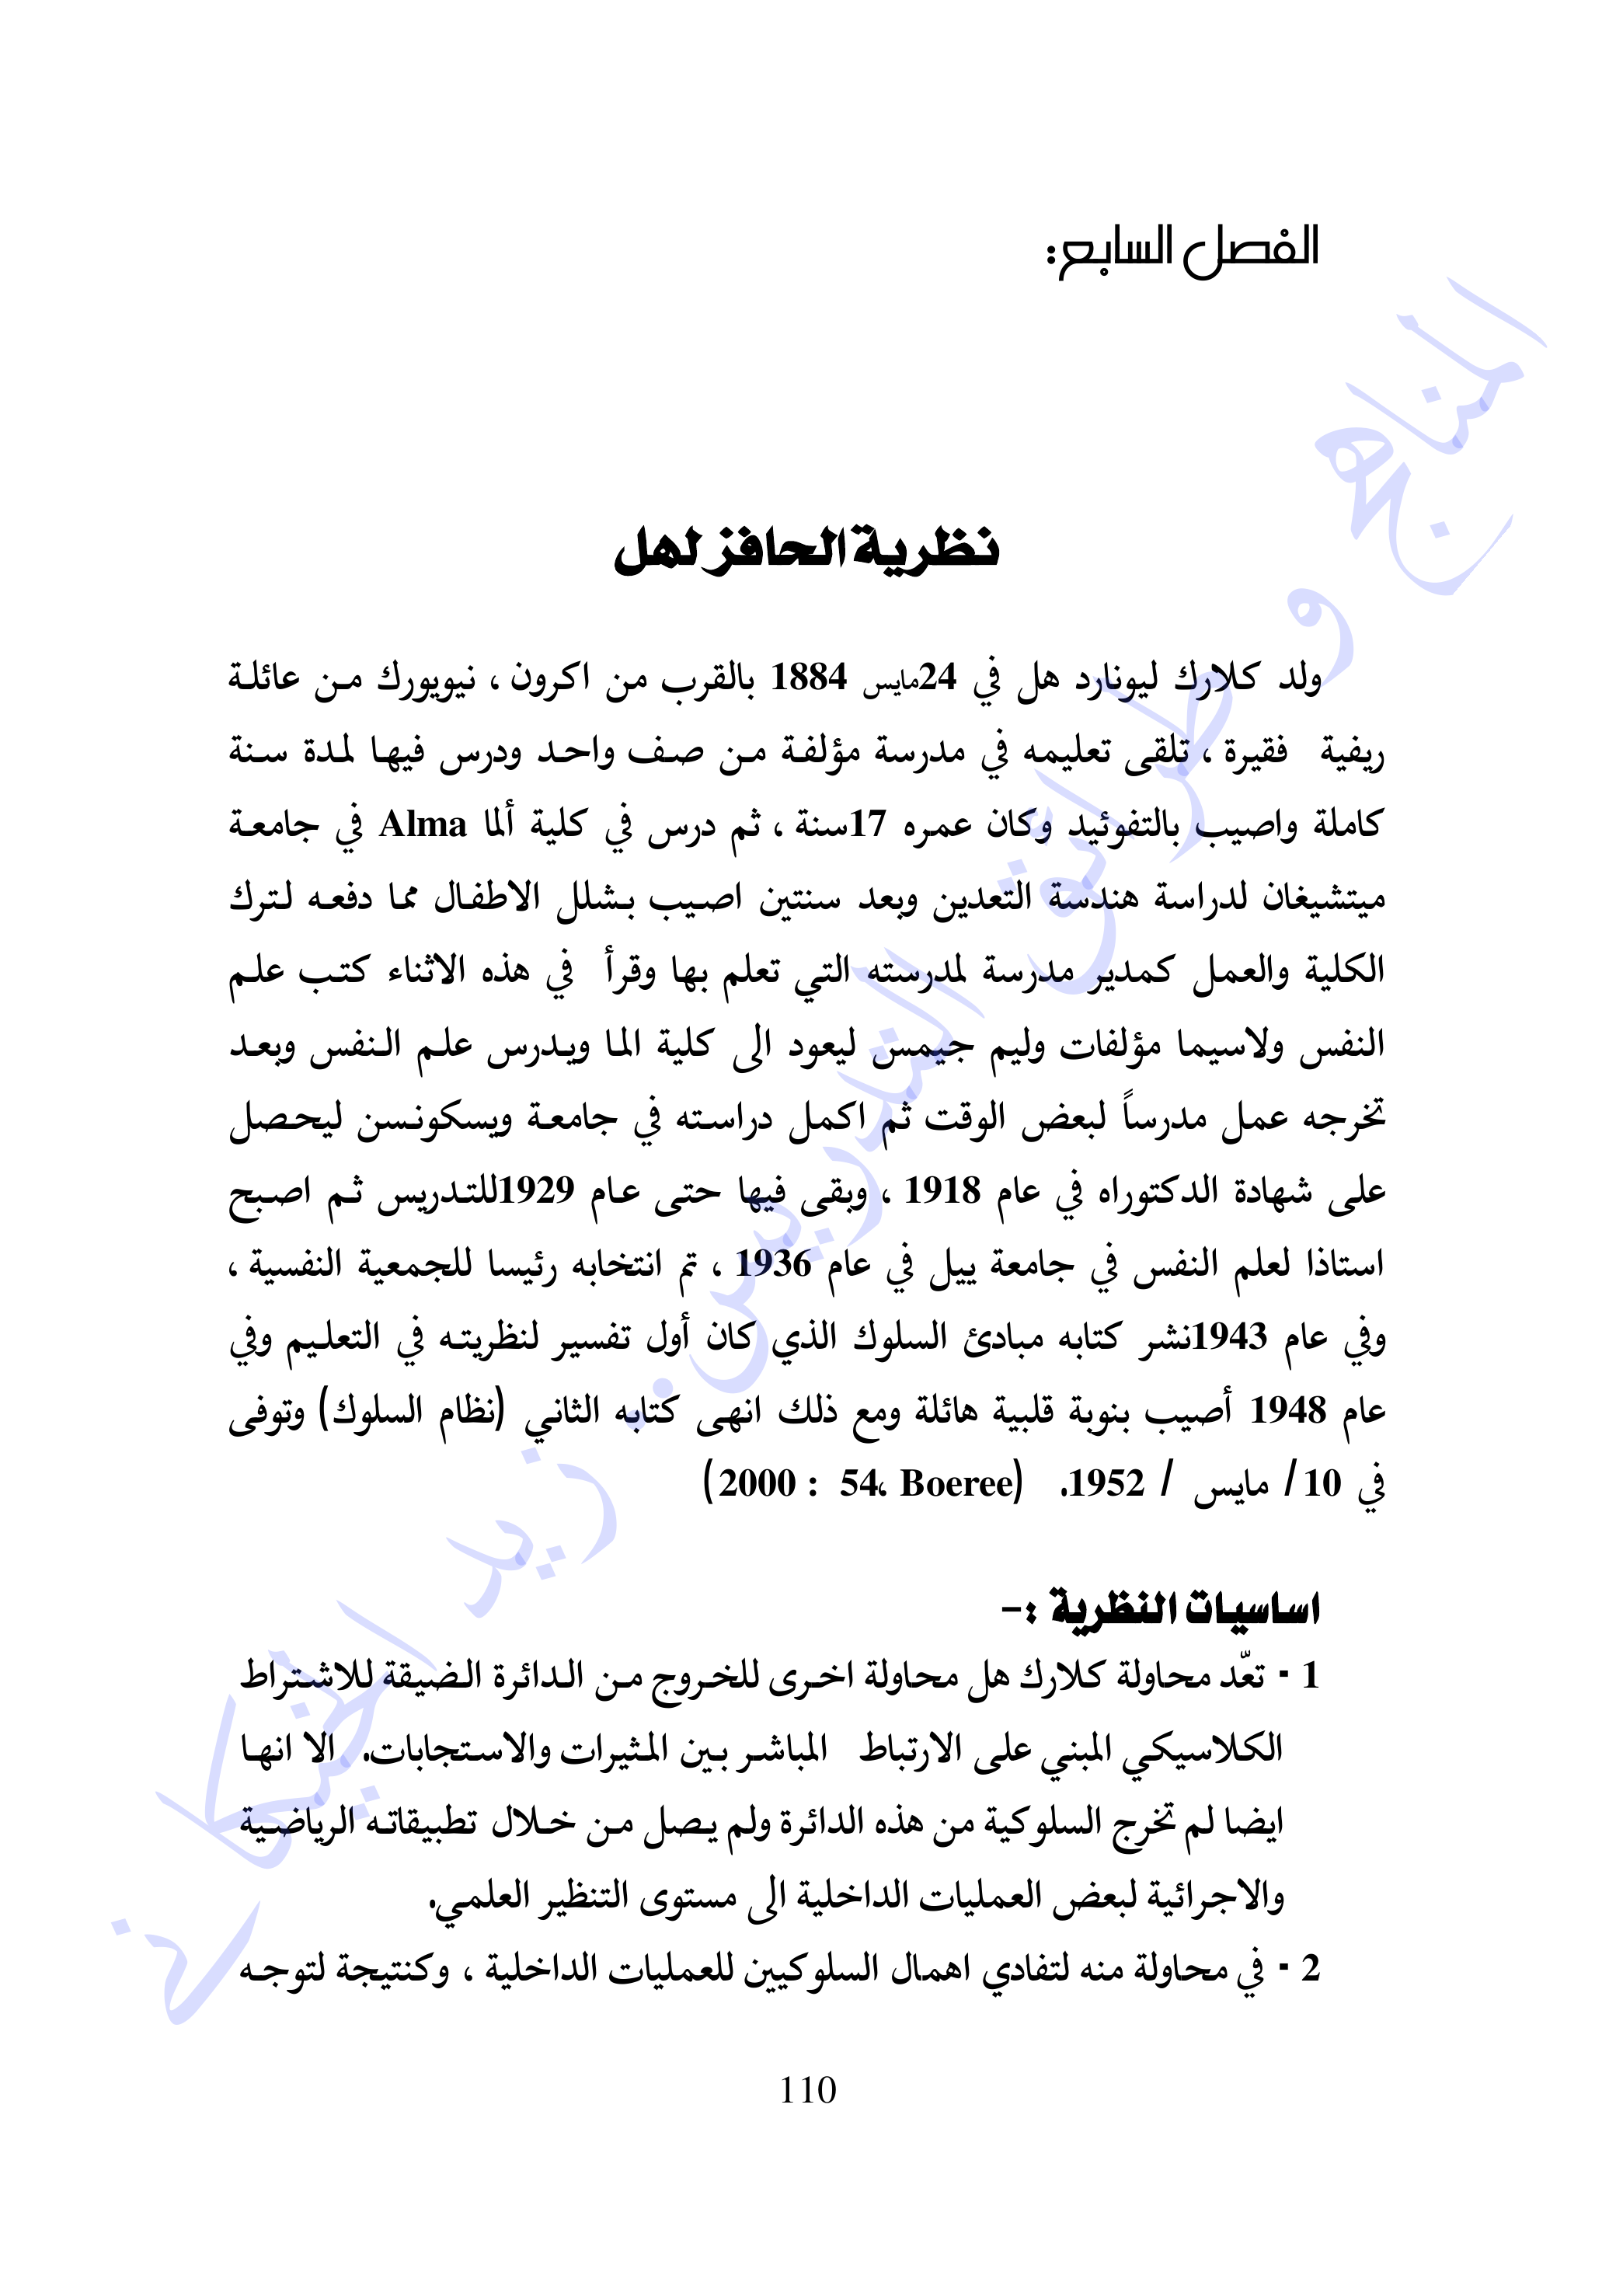 الفصل السابع:
نظرية الحافز لهل
ولد كلارك ليونارد هل في 24مايس 1884 بالقرب من اكرون ، نيويورك من عائلة
ريفية فقيرة ، تلقى تعليمه في مدرسة مؤلفة من صف واحد ودرس فيها لمدة سنة
كاملة واصيب بالتفوئيد وكان عمره 17سنة ، ثم درس في كلية ألما Alma في جامعة
ميتشيغان لدراسة هندسة التعدين وبعد سنتين اصيب بشلل الاطفال مما دفعه لترك
الكلية والعمل كمدير مدرسة لمدرسته التي تعلم بها وقرأ في هذه الاثناء كتب علم
النفس ولاسيما مؤلفات وليم جيمس ليعود الى كلية الما ويدرس علم النفس وبعد
تخرجه عمل مدرساً لبعض الوقت ثم اكمل دراسته في جامعة ويسكونسن ليحصل
على شهادة الدكتوراه في عام 1918 ، وبقى فيها حتى عام 1929للتدريس ثم اصبح
استاذا لعلم النفس في جامعة ييل في عام 1936 ، تم انتخابه رئيسا للجمعية النفسية ،
وفي عام 1943نشر كتابه مبادئ السلوك الذي كان أول تفسير لنظريته في التعليم وفي
عام 1948 أصيب بنوبة قلبية هائلة ومع ذلك انهى كتابه الثاني (نظام السلوك) وتوفى
في 10/ مايس / 1952. (Boeree ،54 : 2000)
اساسيات النظرية :-
1 - تعّد محاولة كلارك هل محاولة اخرى للخروج من الدائرة الضيقة للاشتراط
الكلاسيكي المبني على الارتباط المباشر بين المثيرات والاستجابات. الا انها
ايضا لم تخرج السلوكية من هذه الدائرة ولم يصل من خلال تطبيقاته الرياضية
والاجرائية لبعض العمليات الداخلية الى مستوى التنظير العلمي.
2 - في محاولة منه لتفادي اهمال السلوكيين للعمليات الداخلية ، وكنتيجة لتوجه
110
المناهج وطرائق التدريس. زيد الخيكاني